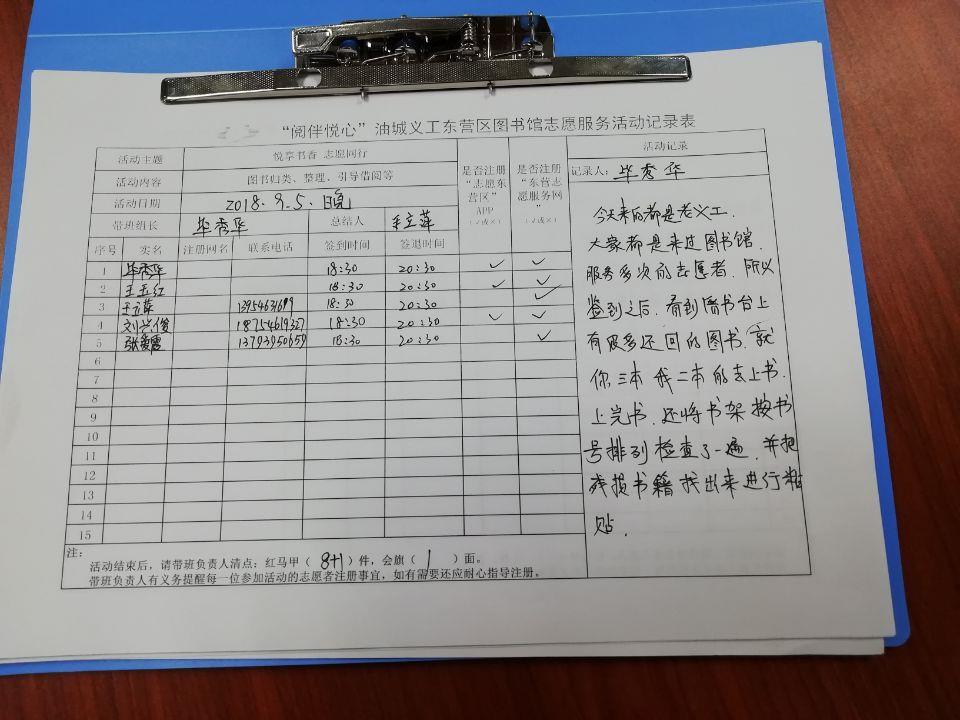 “阅伴悦心”油城义工东营区图书馆志愿服务活动记录表
活动主题 悦享书香 志愿同行
活动内容 图书归类、整理、引导借阅等
活动日期 2018.9.5.日晚
带班组长 毕秀华 总结人 王立萍
是否注册“志愿东营区”APP（√或×）
是否注册“东营志愿服务网”（√或×）
序号 实名 注册网名 联系电话 签到时间 签退时间
1 毕秀华 18:30 20:30 ✓ ✓
2 王玉红 18:30 20:30 ✓ ✓
3 王立萍 18:30 20:30 ✓
4 刘兰俊 18754619327 18:30 20:30 ✓ ✓
5 张爱霞 13793950659 18:30 20:30 ✓
6
7
8
9
10
11
12
13
14
15
注：
活动结束后，请带班负责人清点：红马甲（ 8+1 ）件，会旗（ 1 ）面。
带班负责人有义务提醒每一位参加活动的志愿者注册事宜，如有需要还应耐心指导注册。
活动记录
记录人：毕秀华
今天来的都是老义工.
大家都是来过图书馆.
服务多次的志愿者.所以
签到之后.看到图书台上
有很多还回的图书.就
你三本 我二本的去上书.
上完书.还将书架按书
号排列检查了一遍.并把
残损书籍找出来进行粘
贴.